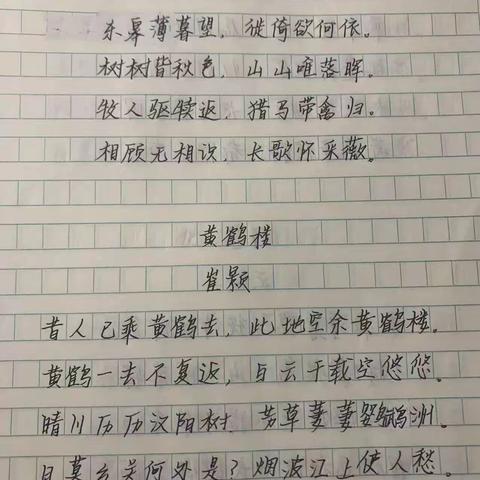 东皋薄暮望，徙倚欲何依。
树树皆秋色，山山唯落晖。
牧人驱犊返，猎马带禽归。
相顾无相识，长歌怀采薇。
黄鹤楼
崔颢
昔人已乘黄鹤去，此地空余黄鹤楼。
黄鹤一去不复返，白云千载空悠悠。
晴川历历汉阳树，芳草萋萋鹦鹉洲。
日暮乡关何处是？烟波江上使人愁。